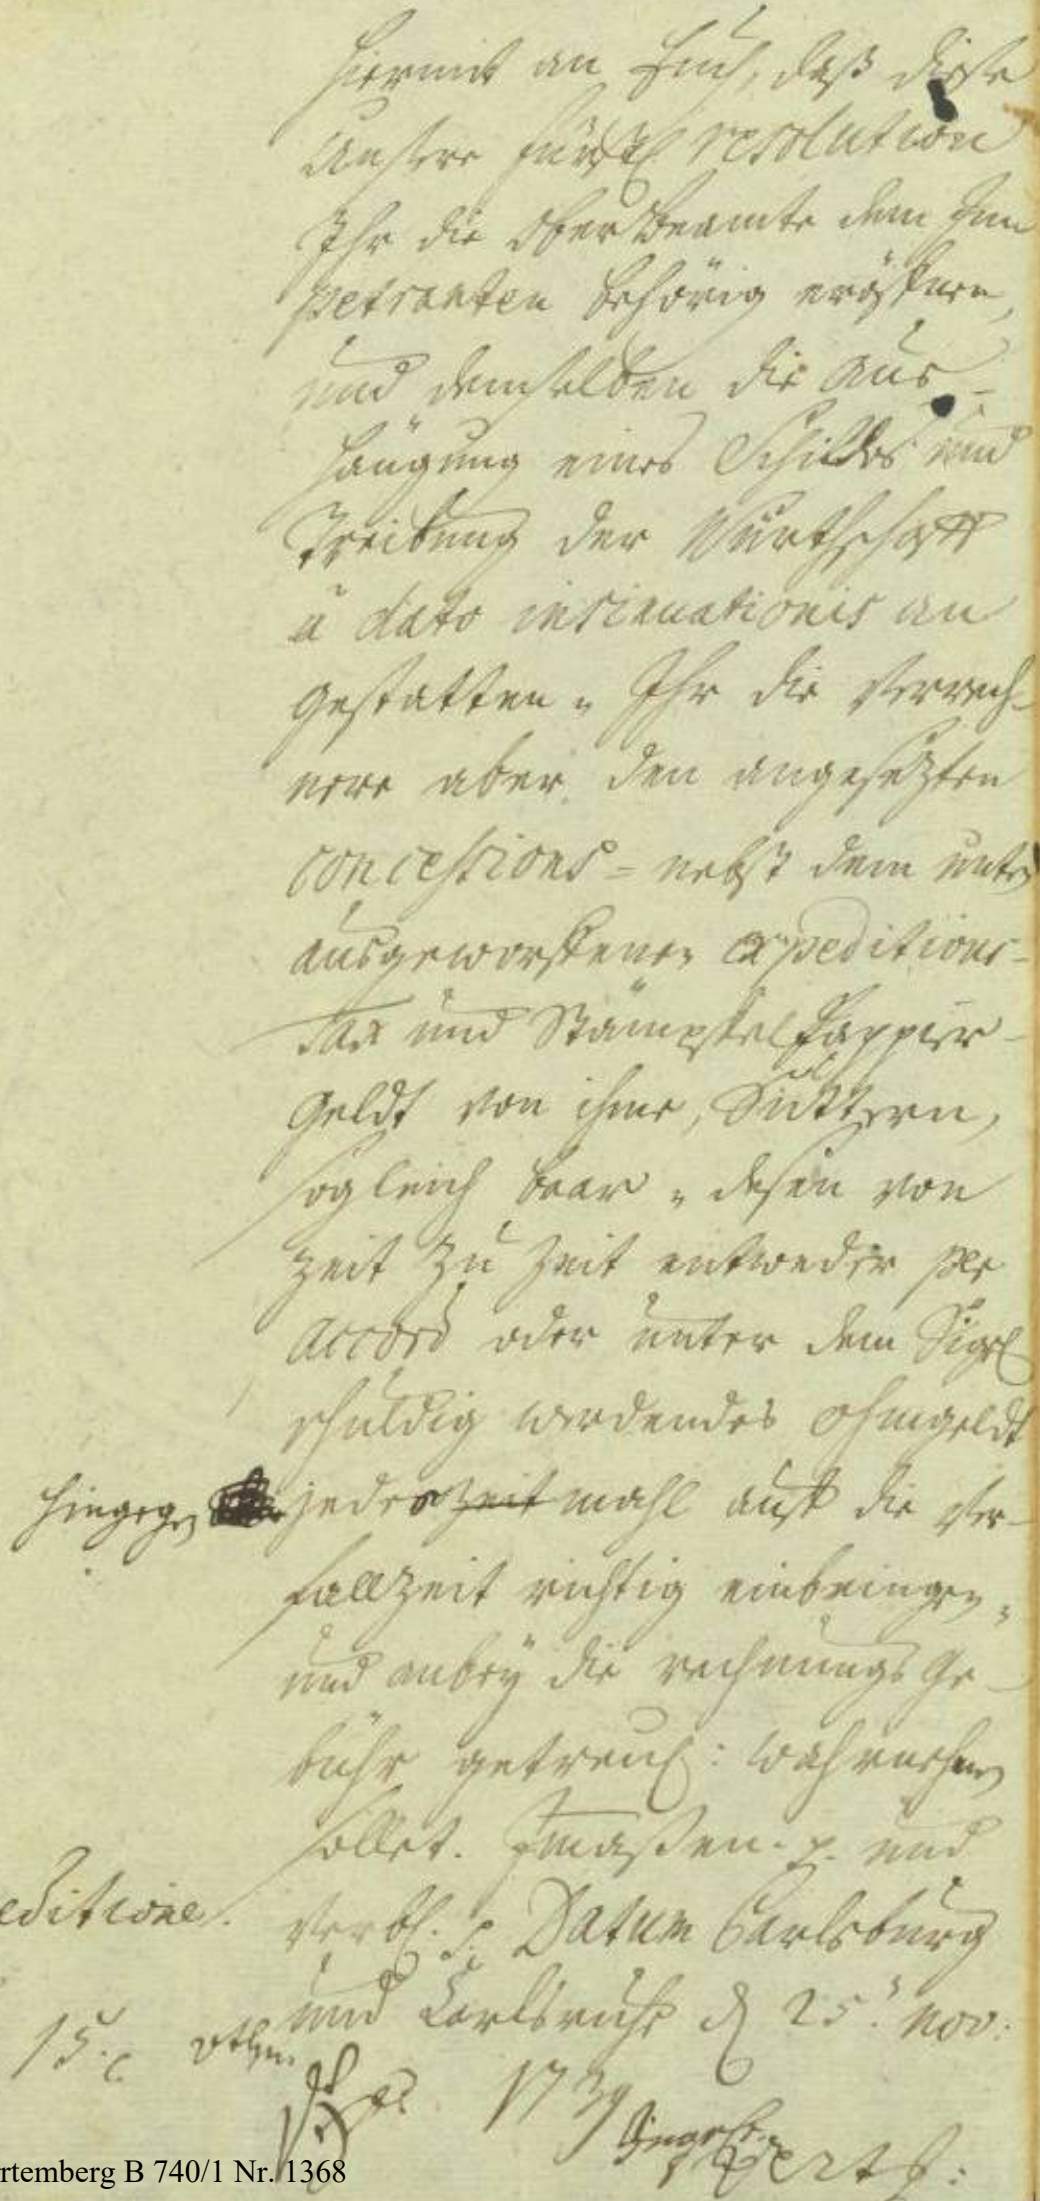 hiermit an Euch, daß diese
Unsere fürstl. resolution
Ihr die Ober Beamte dem Im
petranten behörig eröffnen,
und demselben die Aus-
hängung eines Schildes und
Treibung der Würthschafft
à dato insinuationis an
gestatten, Ihr die Verrech-
nere aber den angesezten
concessions- nebst dem unten
ausgeworffenen expeditions-
Tax und Stämpffel Pappier-
Geldt von ihme, Süttern,
sogleich baar, deßen von
Zeit zu Zeit entweder per
accord oder unter dem Sigel
schuldig werdendes Ohmgeldt
hingegen jedes zeit mahl auff die Ver-
fallzeit richtig einbringen,
und anbey die rechnungs Ge-
bühr getreul: wahrnehmen
sollet. Inmaßen. p. und
editione. Verbl. p. Datum Carlsburg
und Carlsruhe d 25. Nov:
15. c.
1739
rtemberg B 740/1 Nr. 1368